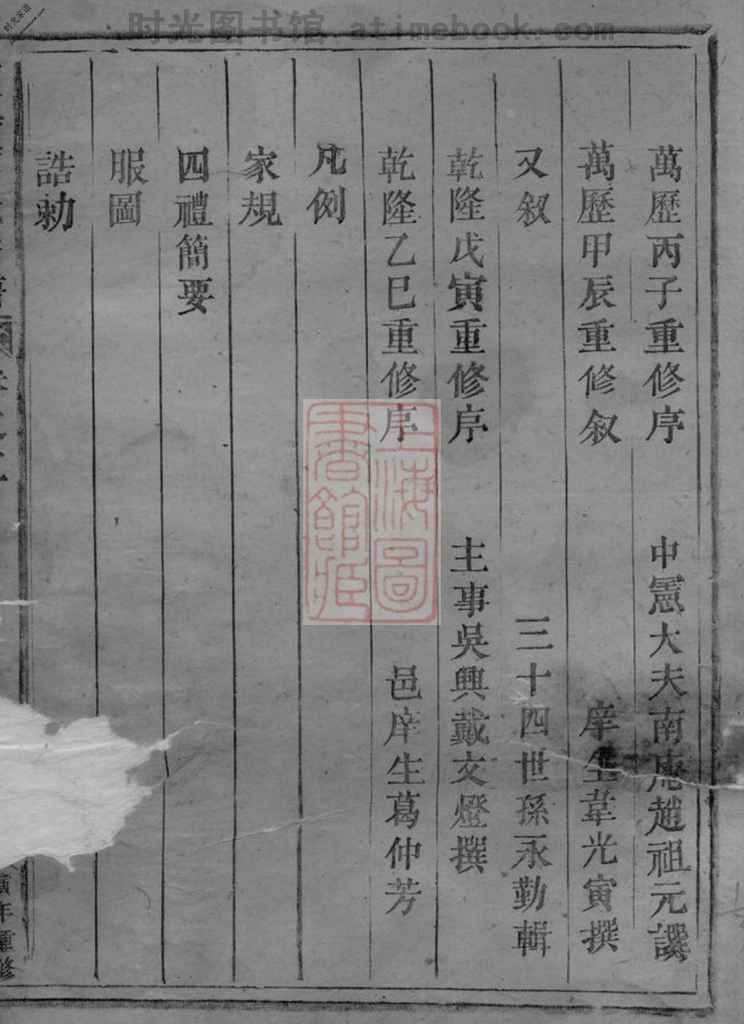 时光图书馆 atimebook.com
萬歷丙子重修序 中憲大夫南庵趙祖元譔
萬歷甲辰重修叙 庠生韋光寅撰
又叙 三十四世孫永勤輯
乾隆戊寅重修序 主事吳興戴文燈撰
乾隆乙巳重修序 邑庠生葛仲芳
凡例
家規
四禮簡要
服圖
誥勅
年重修
上海圖書館藏